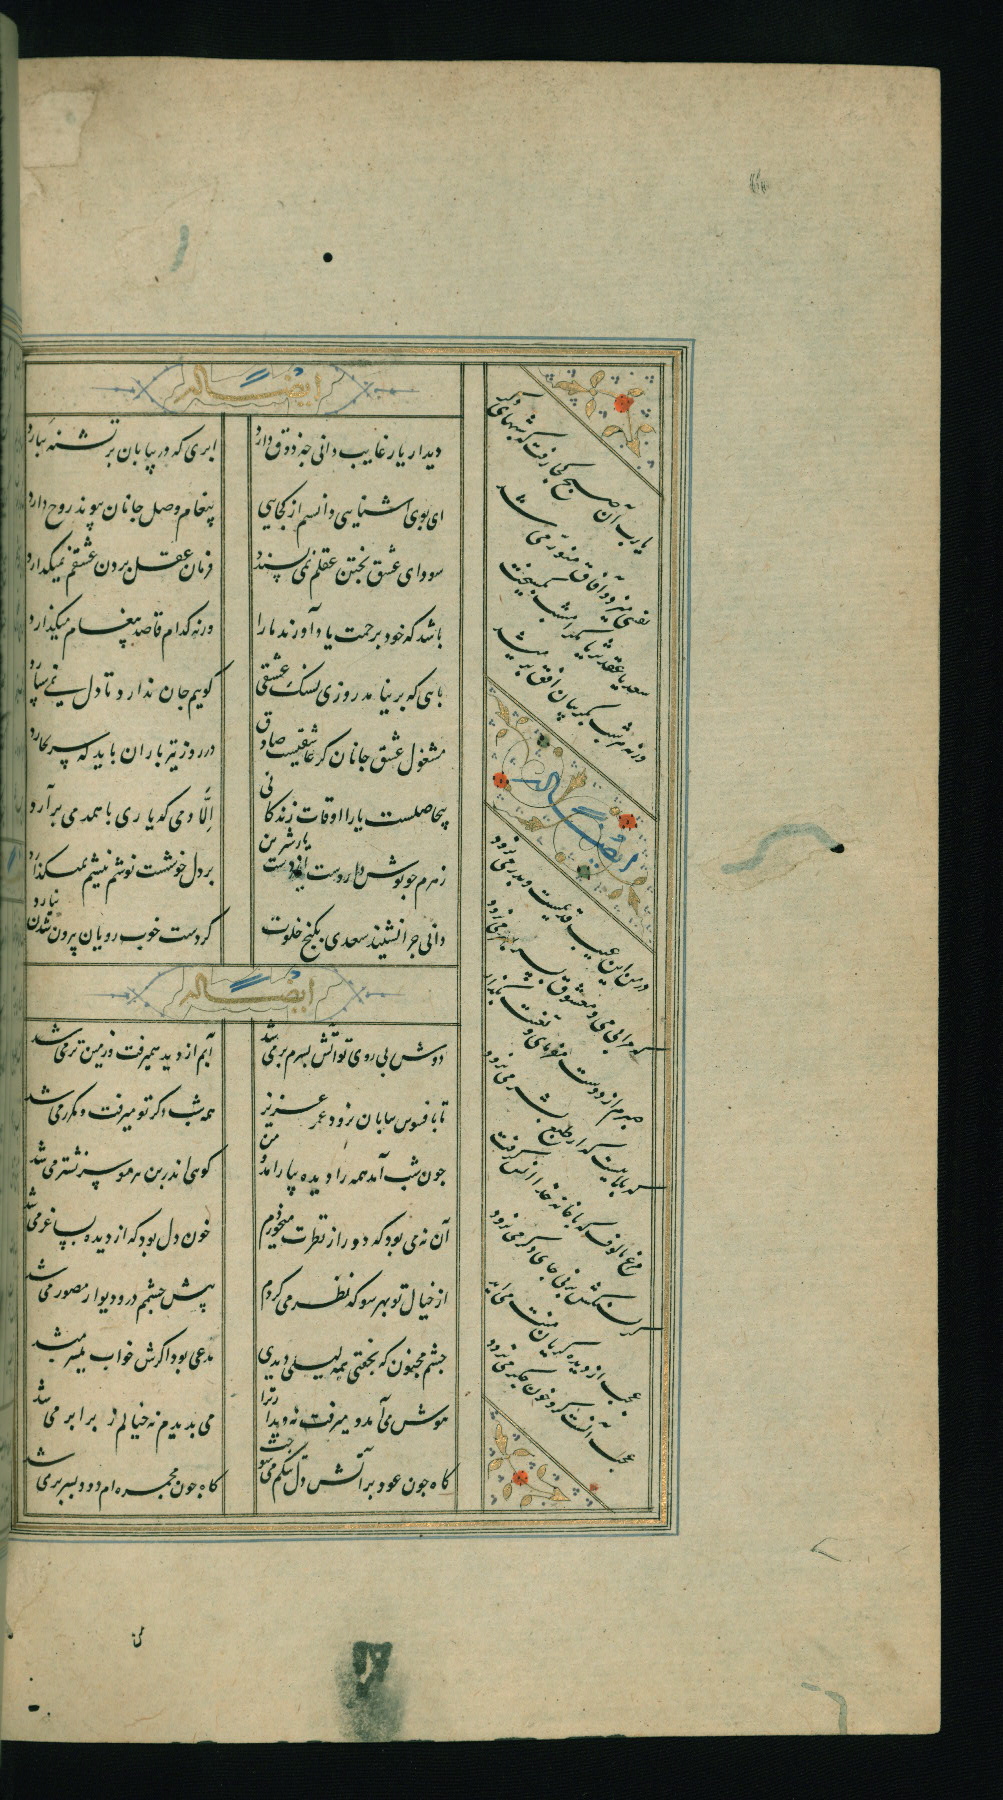 ایضاله
دیدار یار غایب دانی چه ذوق دارد
ابری که در بیابان بر تشنهٔ ببارد
ای بوی آشنایی دانستم از کجایی
پیغام وصل جانان پیوند روح دارد
سودای عشق پختن عقلم نمی پسندد
فرمان عقل بردن عشقم نمیگذارد
باشد که خود برحمت یاد آورند ما را
ورنه کدام قاصد پیغام میگذارد
باهی که بر نیامد روزی بسنگ عشقی
گویم جان ندارد تا دل نمی سپارد
مشغول عشق جانان گر عاشقیست صادق
در روز تیر باران باید که سر نخارد
بیحاصلست یارا اوقات زندگانی
الّا دمی که یاری با همدمی برآرد
زهرم چو نوش دارو از دست یار شیرین
بر دل خوشست نوشم بیشم نمیگذارد
دانی چرا نشیند سعدی بکنج خلوت
کز دست خوب رویان بیرون شدن نیارد
ایضاله
دوش بی روی تو آتش بسرم بر می شد
آبم از دیده همیرفت و زمین تر می شد
تا بافسوس بپایان نرود عمر عزیز
همه شب ذکر تو میرفت و مکرر می شد
چون شب آمد همه را دیده بیارامد و من
گویی اندر بن هر مو سر نشتر می شد
آن نه می بود که دور از نظرت میخوردم
خون دل بود که از دیده بساغر می شد
از خیال تو بهر سو که نظر می کردم
پیش چشمم در و دیوار مصور می شد
چشم مجنون که بخفتی همه لیلی دیدی
مدعی بود اگرش خواب میسر میشد
هوش می آمد و میرفت نه دیدار ترا
می بدیدم نه خیالم ز برابر می شد
گاه چون عود بر آتش دل تنگم می سوخت
گاه چون مجمره ام دود بسر بر می شد
یارب آن صبح کجا رفت که شبهای دگر
نفسی میزد و آفاق منور می شد
سعدیا عقد ثریا مگر امشب بگسیخت
ورنه هر شب بگریبان افق بر میشد
ایضاله
در من این عیب قدیمست و بدر می نرود
که مرا بی می و معشوق بسر می نرود
صبرم از دوست مفرمای و تعنت بگذار
که بلاییست که از طبع بشر می نرود
مرغ مالوف که با خانه خدا انس گرفت
گر بسنگش بزنی جای دگر می نرود
عجب از دیده گریان منت می آید
عجب آنست کزو خون جگر می نرود